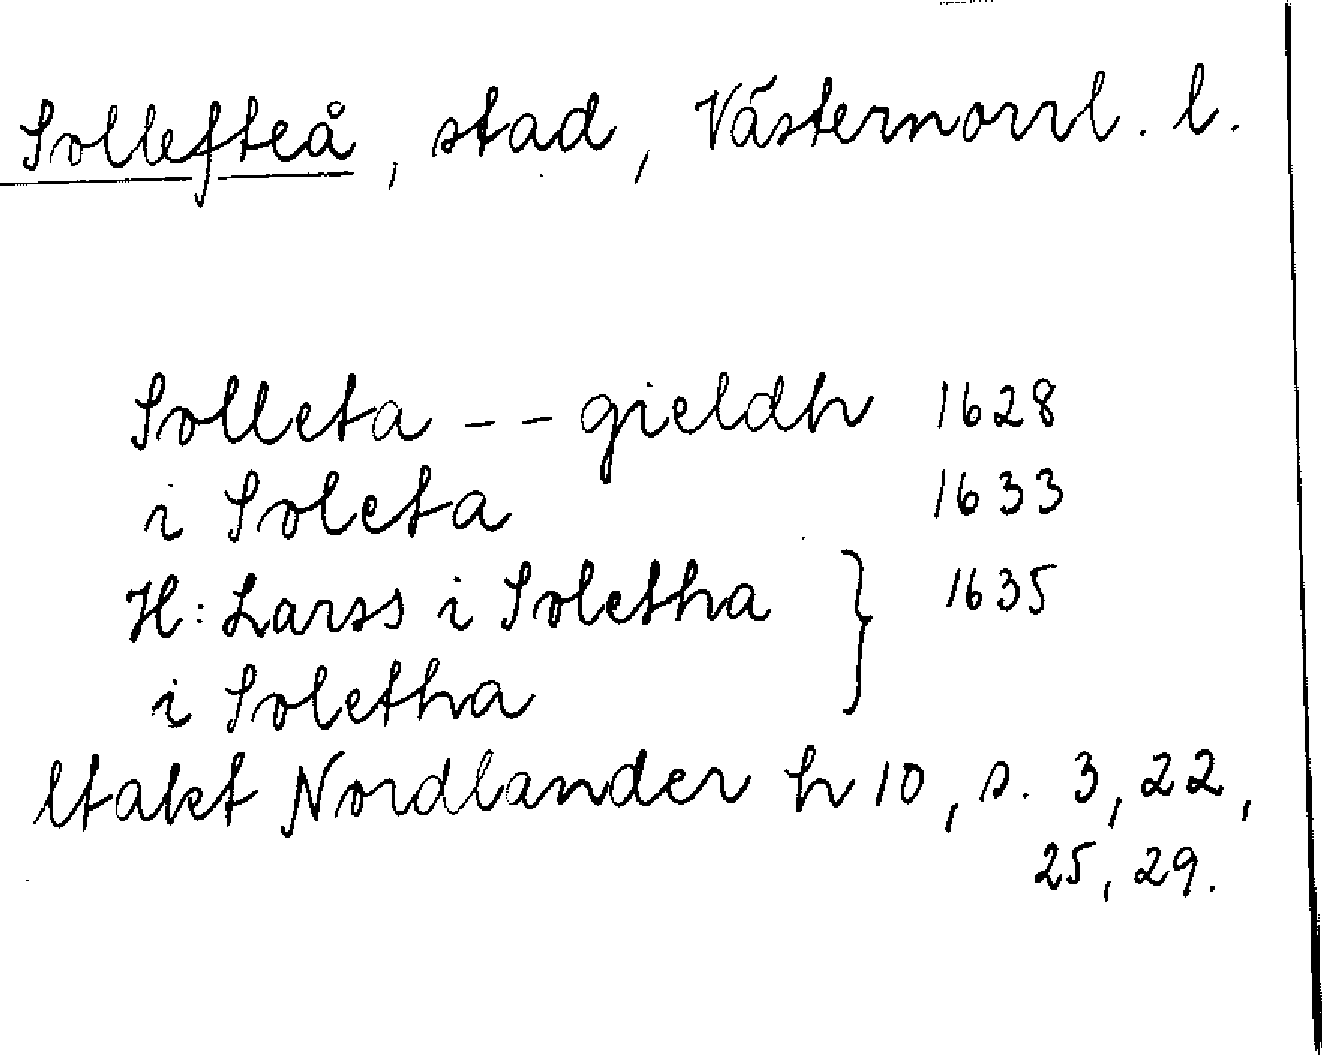 Sollefteå, stad, Västernorrl. l.
Solleta -- gieldh 1628
i Soleta 1633
H: Larss i Soletha } 1635
i Soletha
Utakt Nordlander h 10, s. 3, 22,
25, 29.